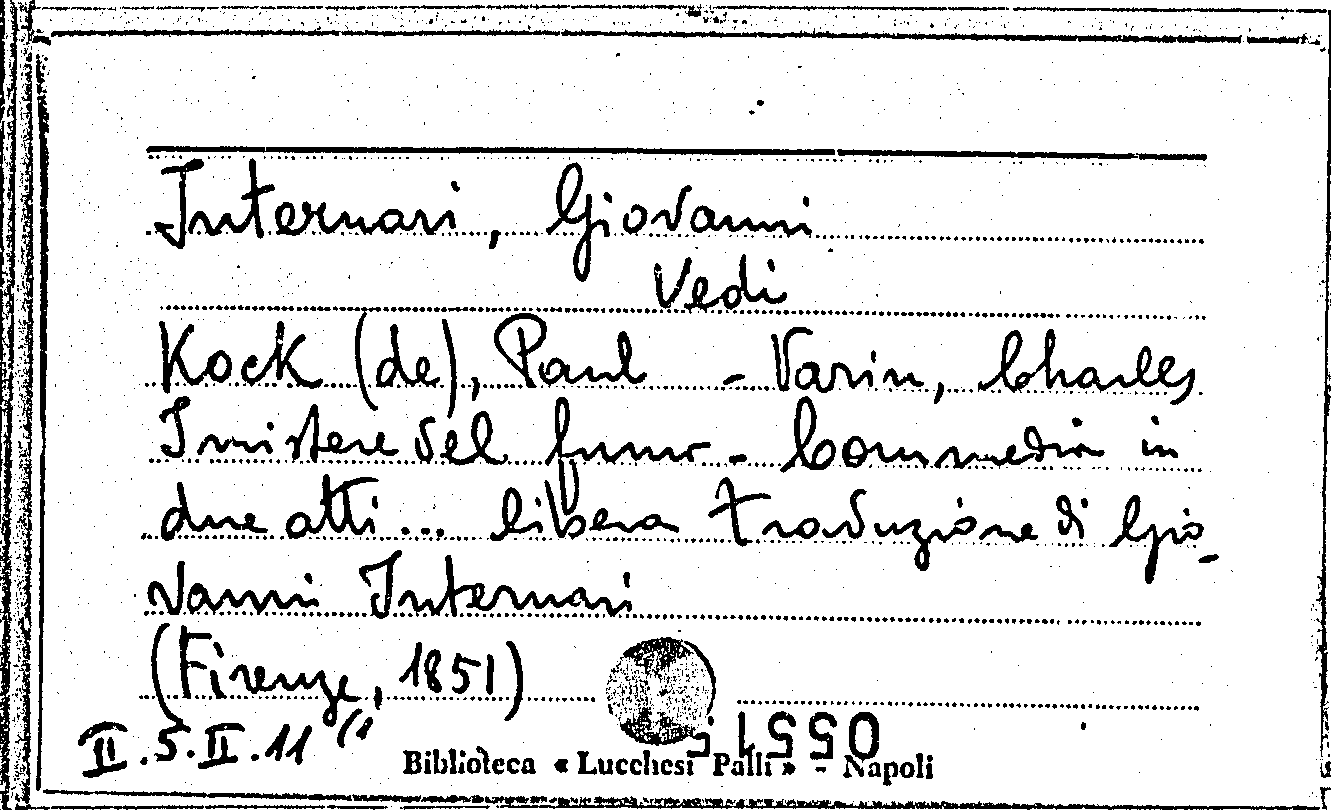 Internari, Giovanni
Vedi
Kock (de), Paul - Varin, Charles
I mistere del fiume - Commedia in
due atti... libera traduzione di Gio-
vanni Internari
(Firenze, 1851)
II.5.II.11
Biblioteca « Lucchesi Palli » - Napoli